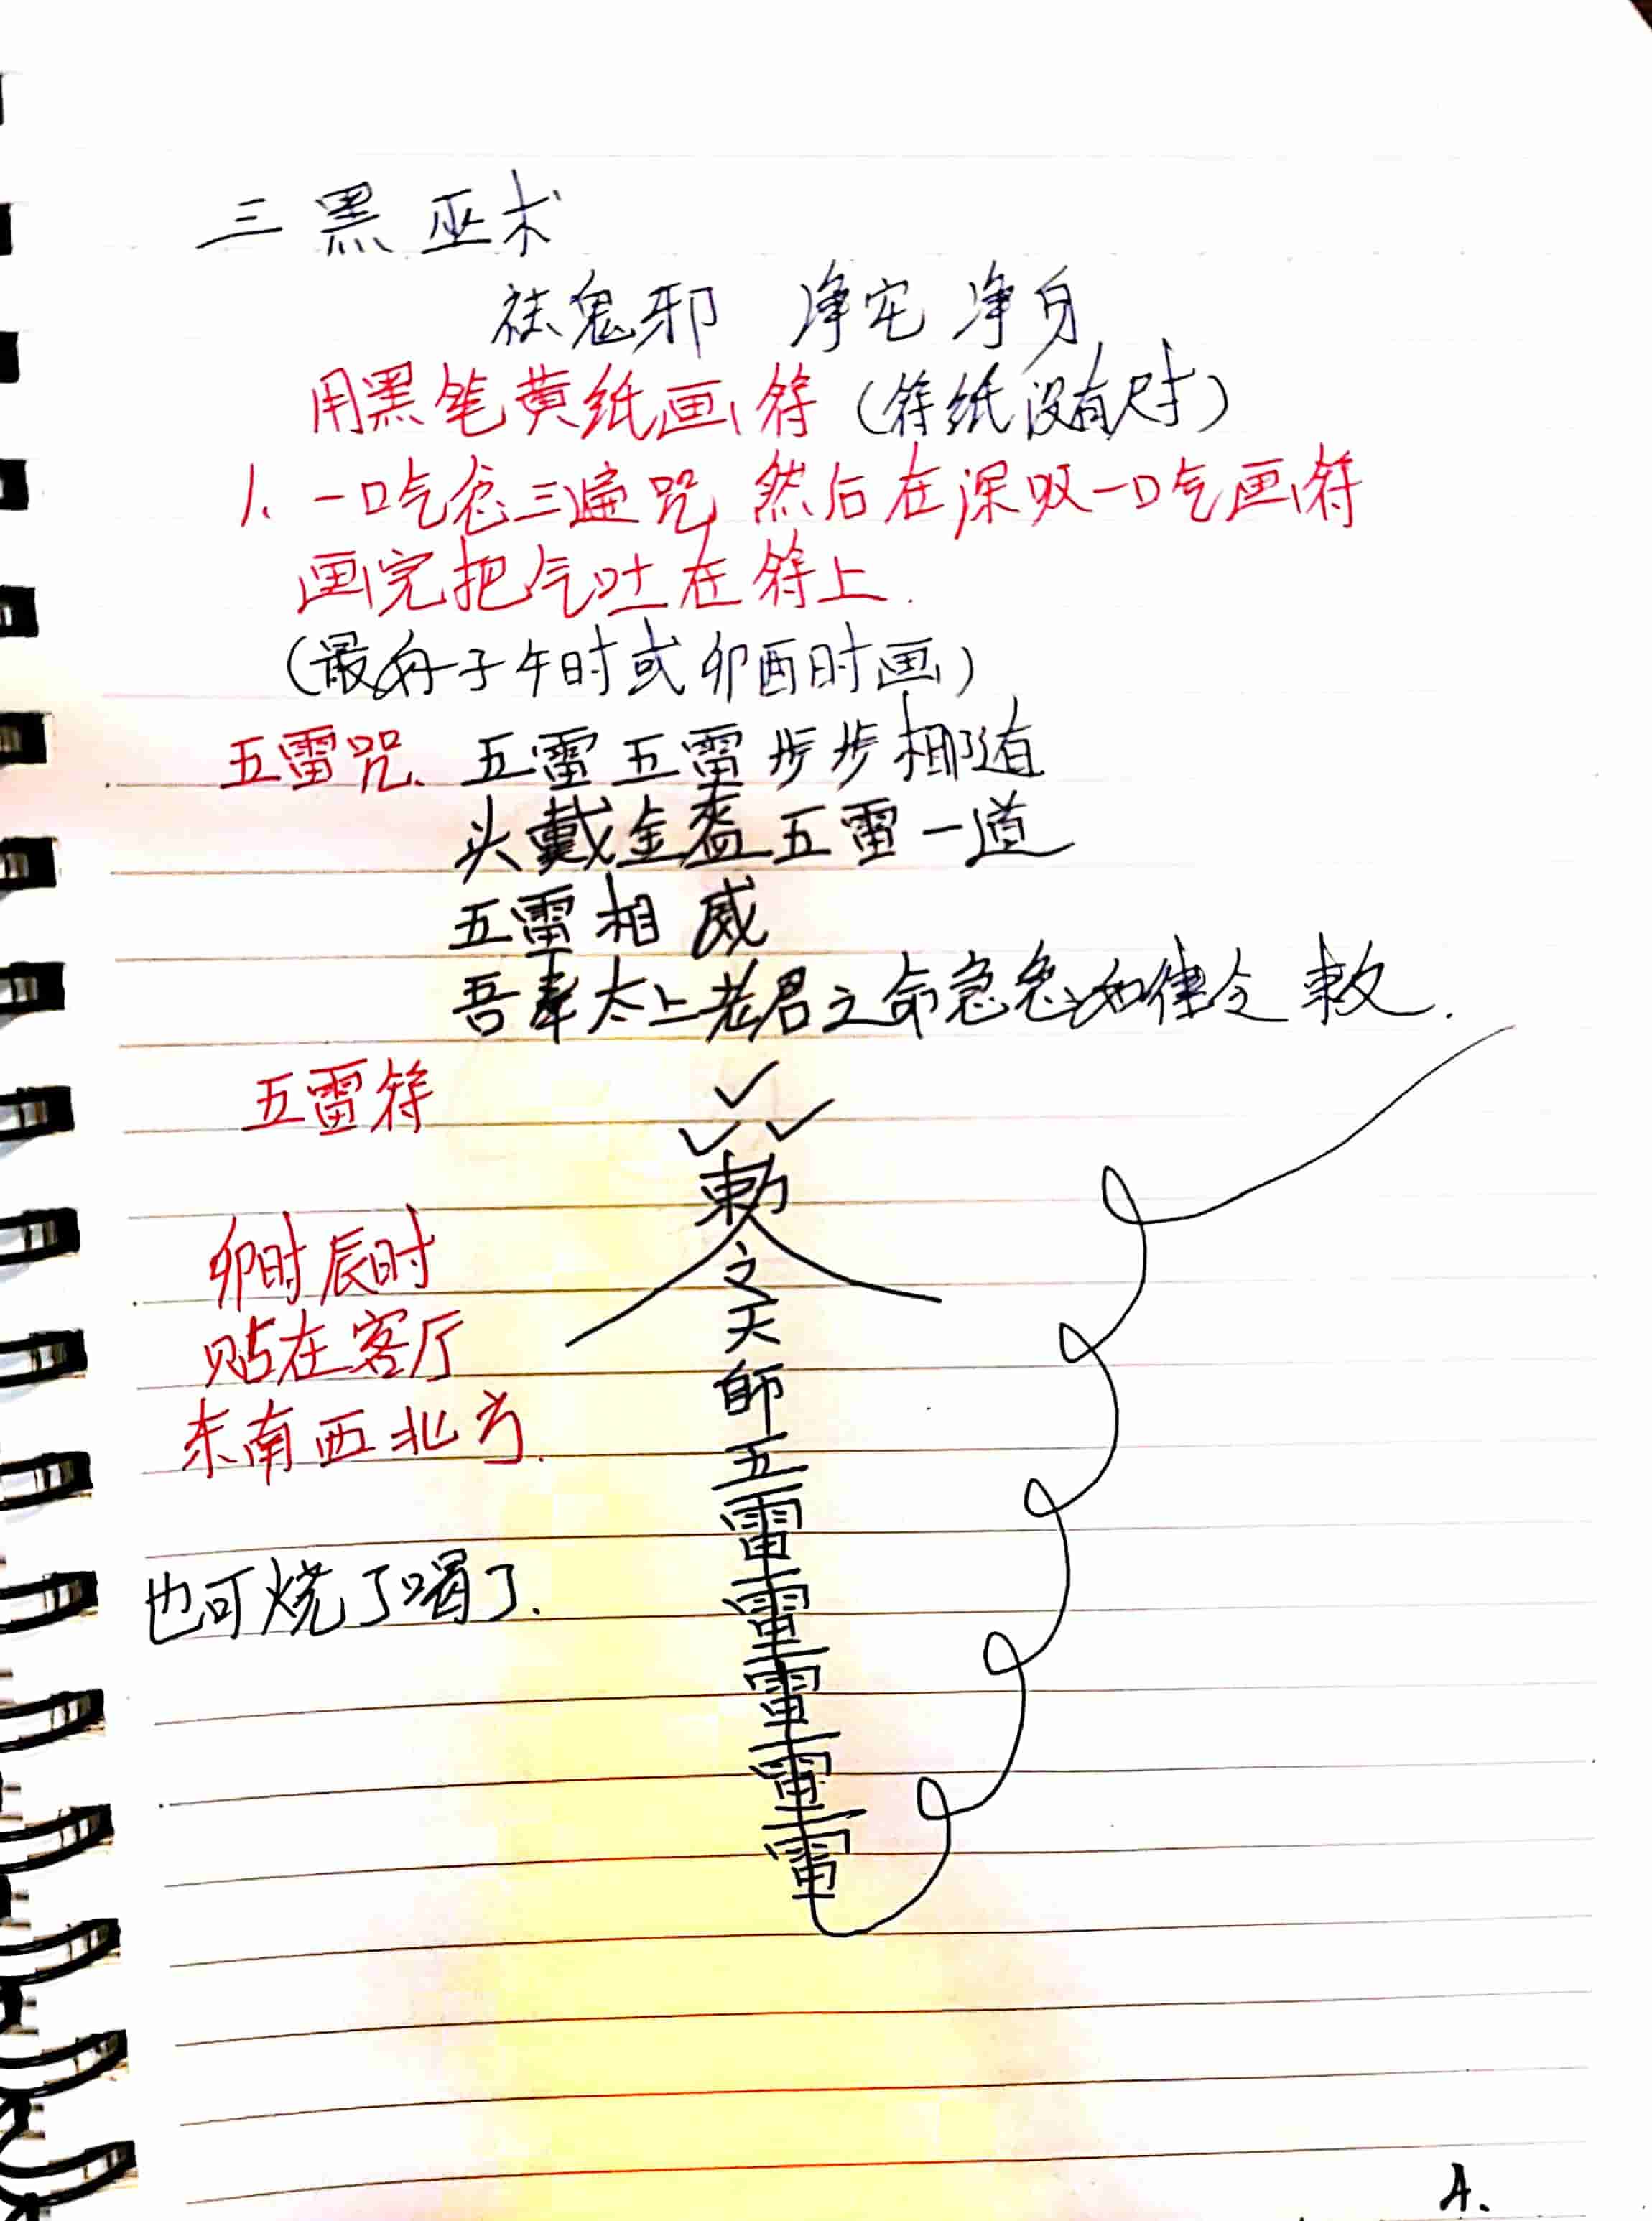 三黑巫术
祛鬼邪 净宅 净身
用黑笔黄纸画符(符纸没有尺寸)
1、一口气念三遍咒 然后在深吸一口气画符
画完把气吐在符上.
(最好子午时或卯酉时画)
五雷咒、五雷五雷步步相随
头戴金盔五雷一道
五雷相威
吾奉太上老君之命急急如律令 敕.
五雷符
敕
令
文
天
師
五
雷
雷
雷
雷
雷
卯时辰时
贴在客厅
东南西北方.
也可烧了喝了.
A.